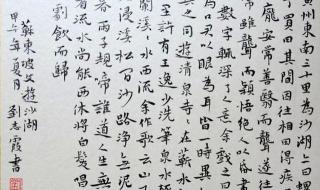 黃州東南三十里為沙湖亦曰螺
予買田其間因往相田得疾
龐安常善醫而聾遂
常雖聾而穎悟絕人以
數字輒深了人意余戲之曰
為口君以眼為耳皆一時異
之同遊清泉寺寺在蘄水
里許有王逸少洗筆泉水極
蘭溪溪水西流余作歌云山下
浸溪松間沙路淨無泥
雨子規啼誰道人生無
看流水尚能西休將白髮唱
劇飲而歸
蘇東坡文遊沙湖
甲午年夏月劉志霞書